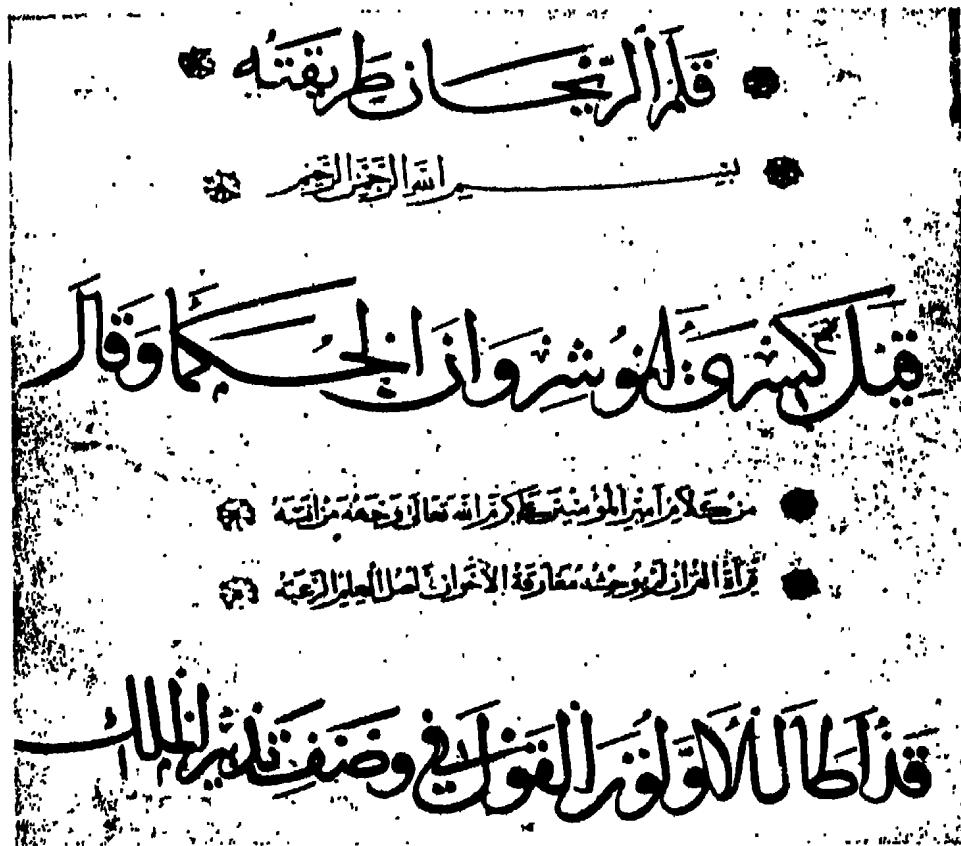 قلم الريحان طريقته
بسم الله الرحمن الرحيم
قيل كسرى انوشروان الحكما وقال
من كلام أمير المؤمنين علي كرم الله تعالى وجهه من آنسه
قرآة القرآن لم يوحشه مفارقة الاخوان اصل العلم الرغبة
قد أطال الاولون القول في وصف تدبير الملك